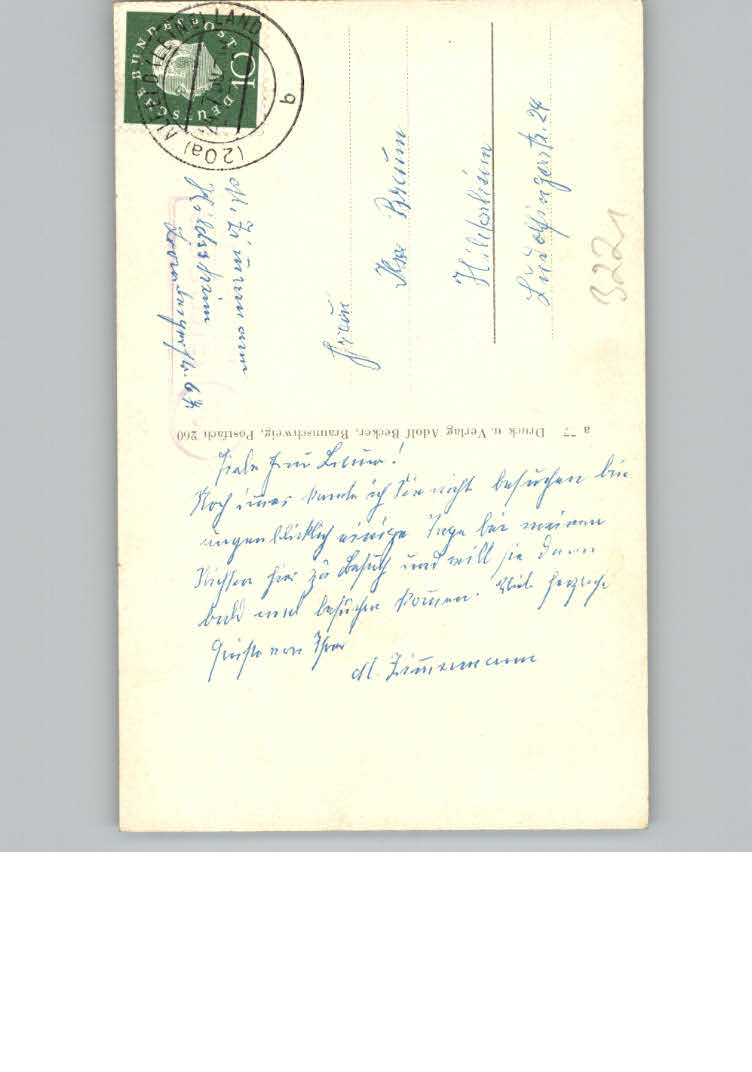 DEUTSCHE BUNDESPOST
10
(20a) ALFELD (LEINE) LAND
b
M. Zimmermann
Hildesheim
Frau
Braun
Hildesheim
Ludolfingerstr. 24
3221
a 77 Druck u. Verlag Adolf Becker, Braunschweig, Postfach 260
Liebe Frau Braun!
Noch immer konnte ich Sie nicht besuchen bin
augenblicklich einige Tage bei meinen
Nichten hier zu Besuch und will sie dann
bald mal besuchen kommen. Viele herzliche
Grüße von Ihrer
M. Zimmermann